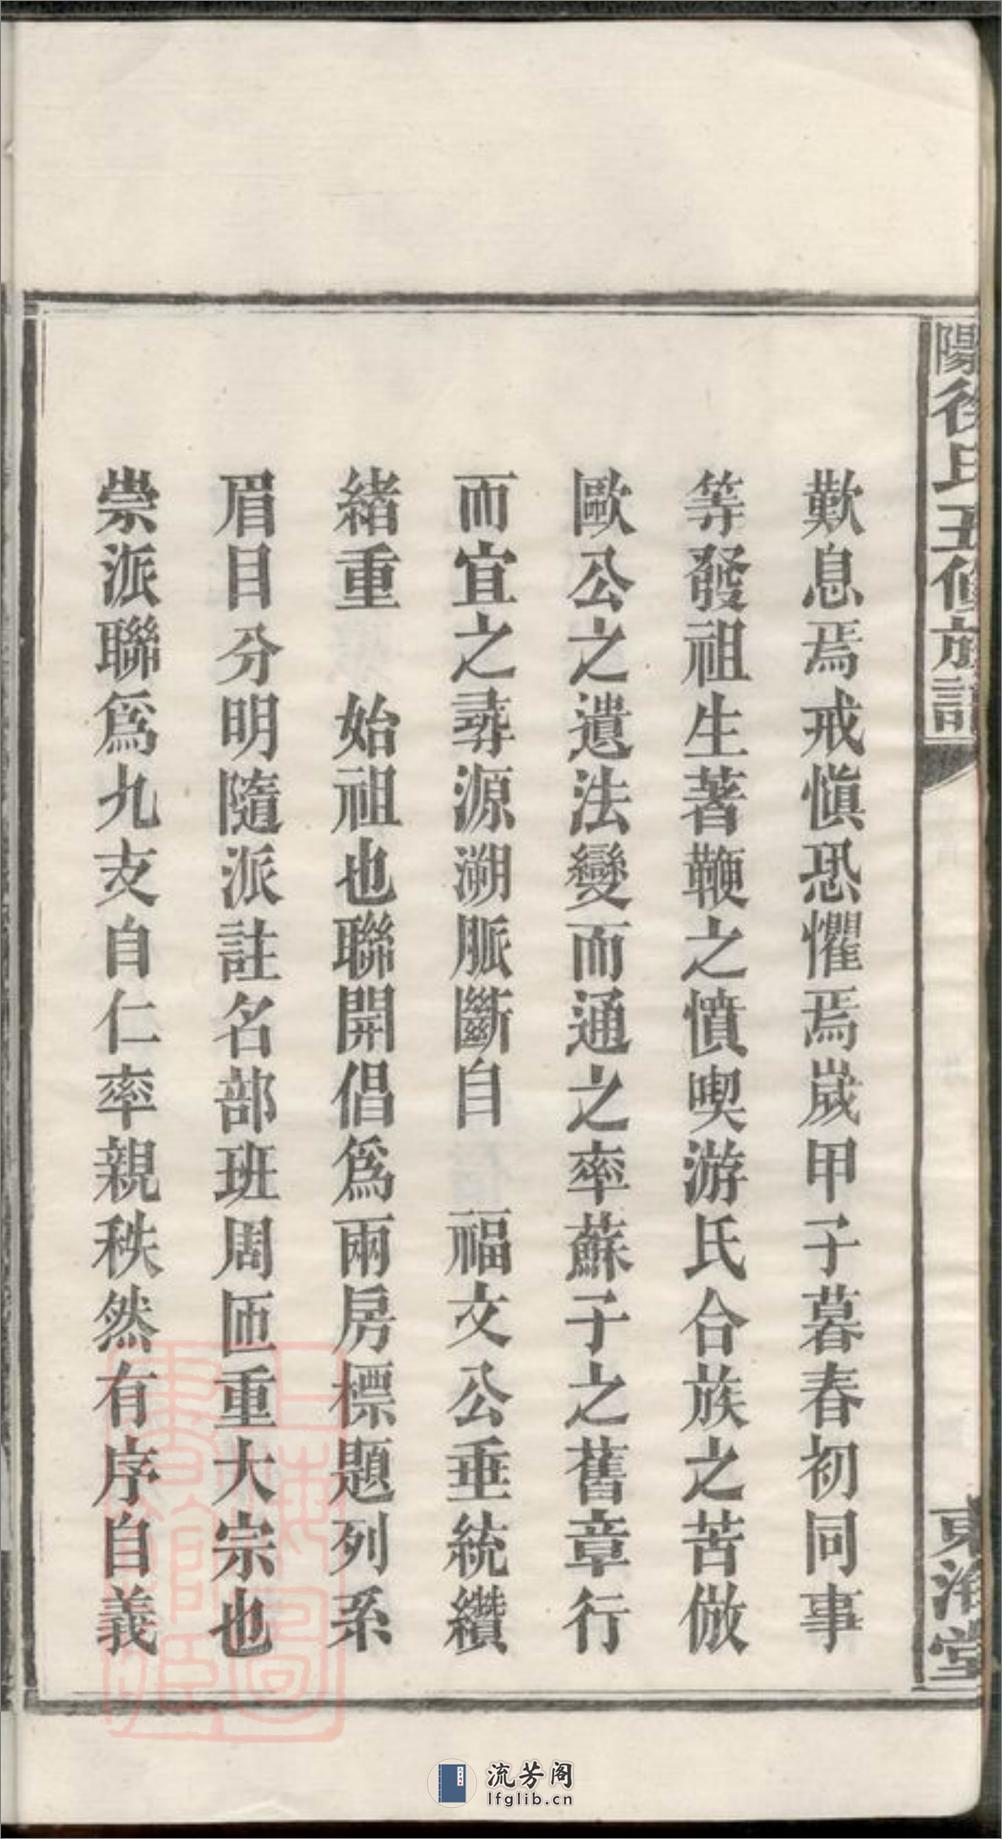 陽徐氏五修族譜
東海堂
歎息焉戒愼恐懼焉歲甲子暮春初同事
等發祖生著鞭之憤喫游氏合族之苦倣
歐公之遺法變而通之率蘇子之舊章行
而宜之尋源溯脈斷自 福文公垂統纘
緒重 始祖也聯開倡爲兩房標題列系
眉目分明隨派註名部班周匝重大宗也
崇派聯爲九支自仁率親秩然有序自義
上海圖書館藏
流芳阁
lfglib.cn